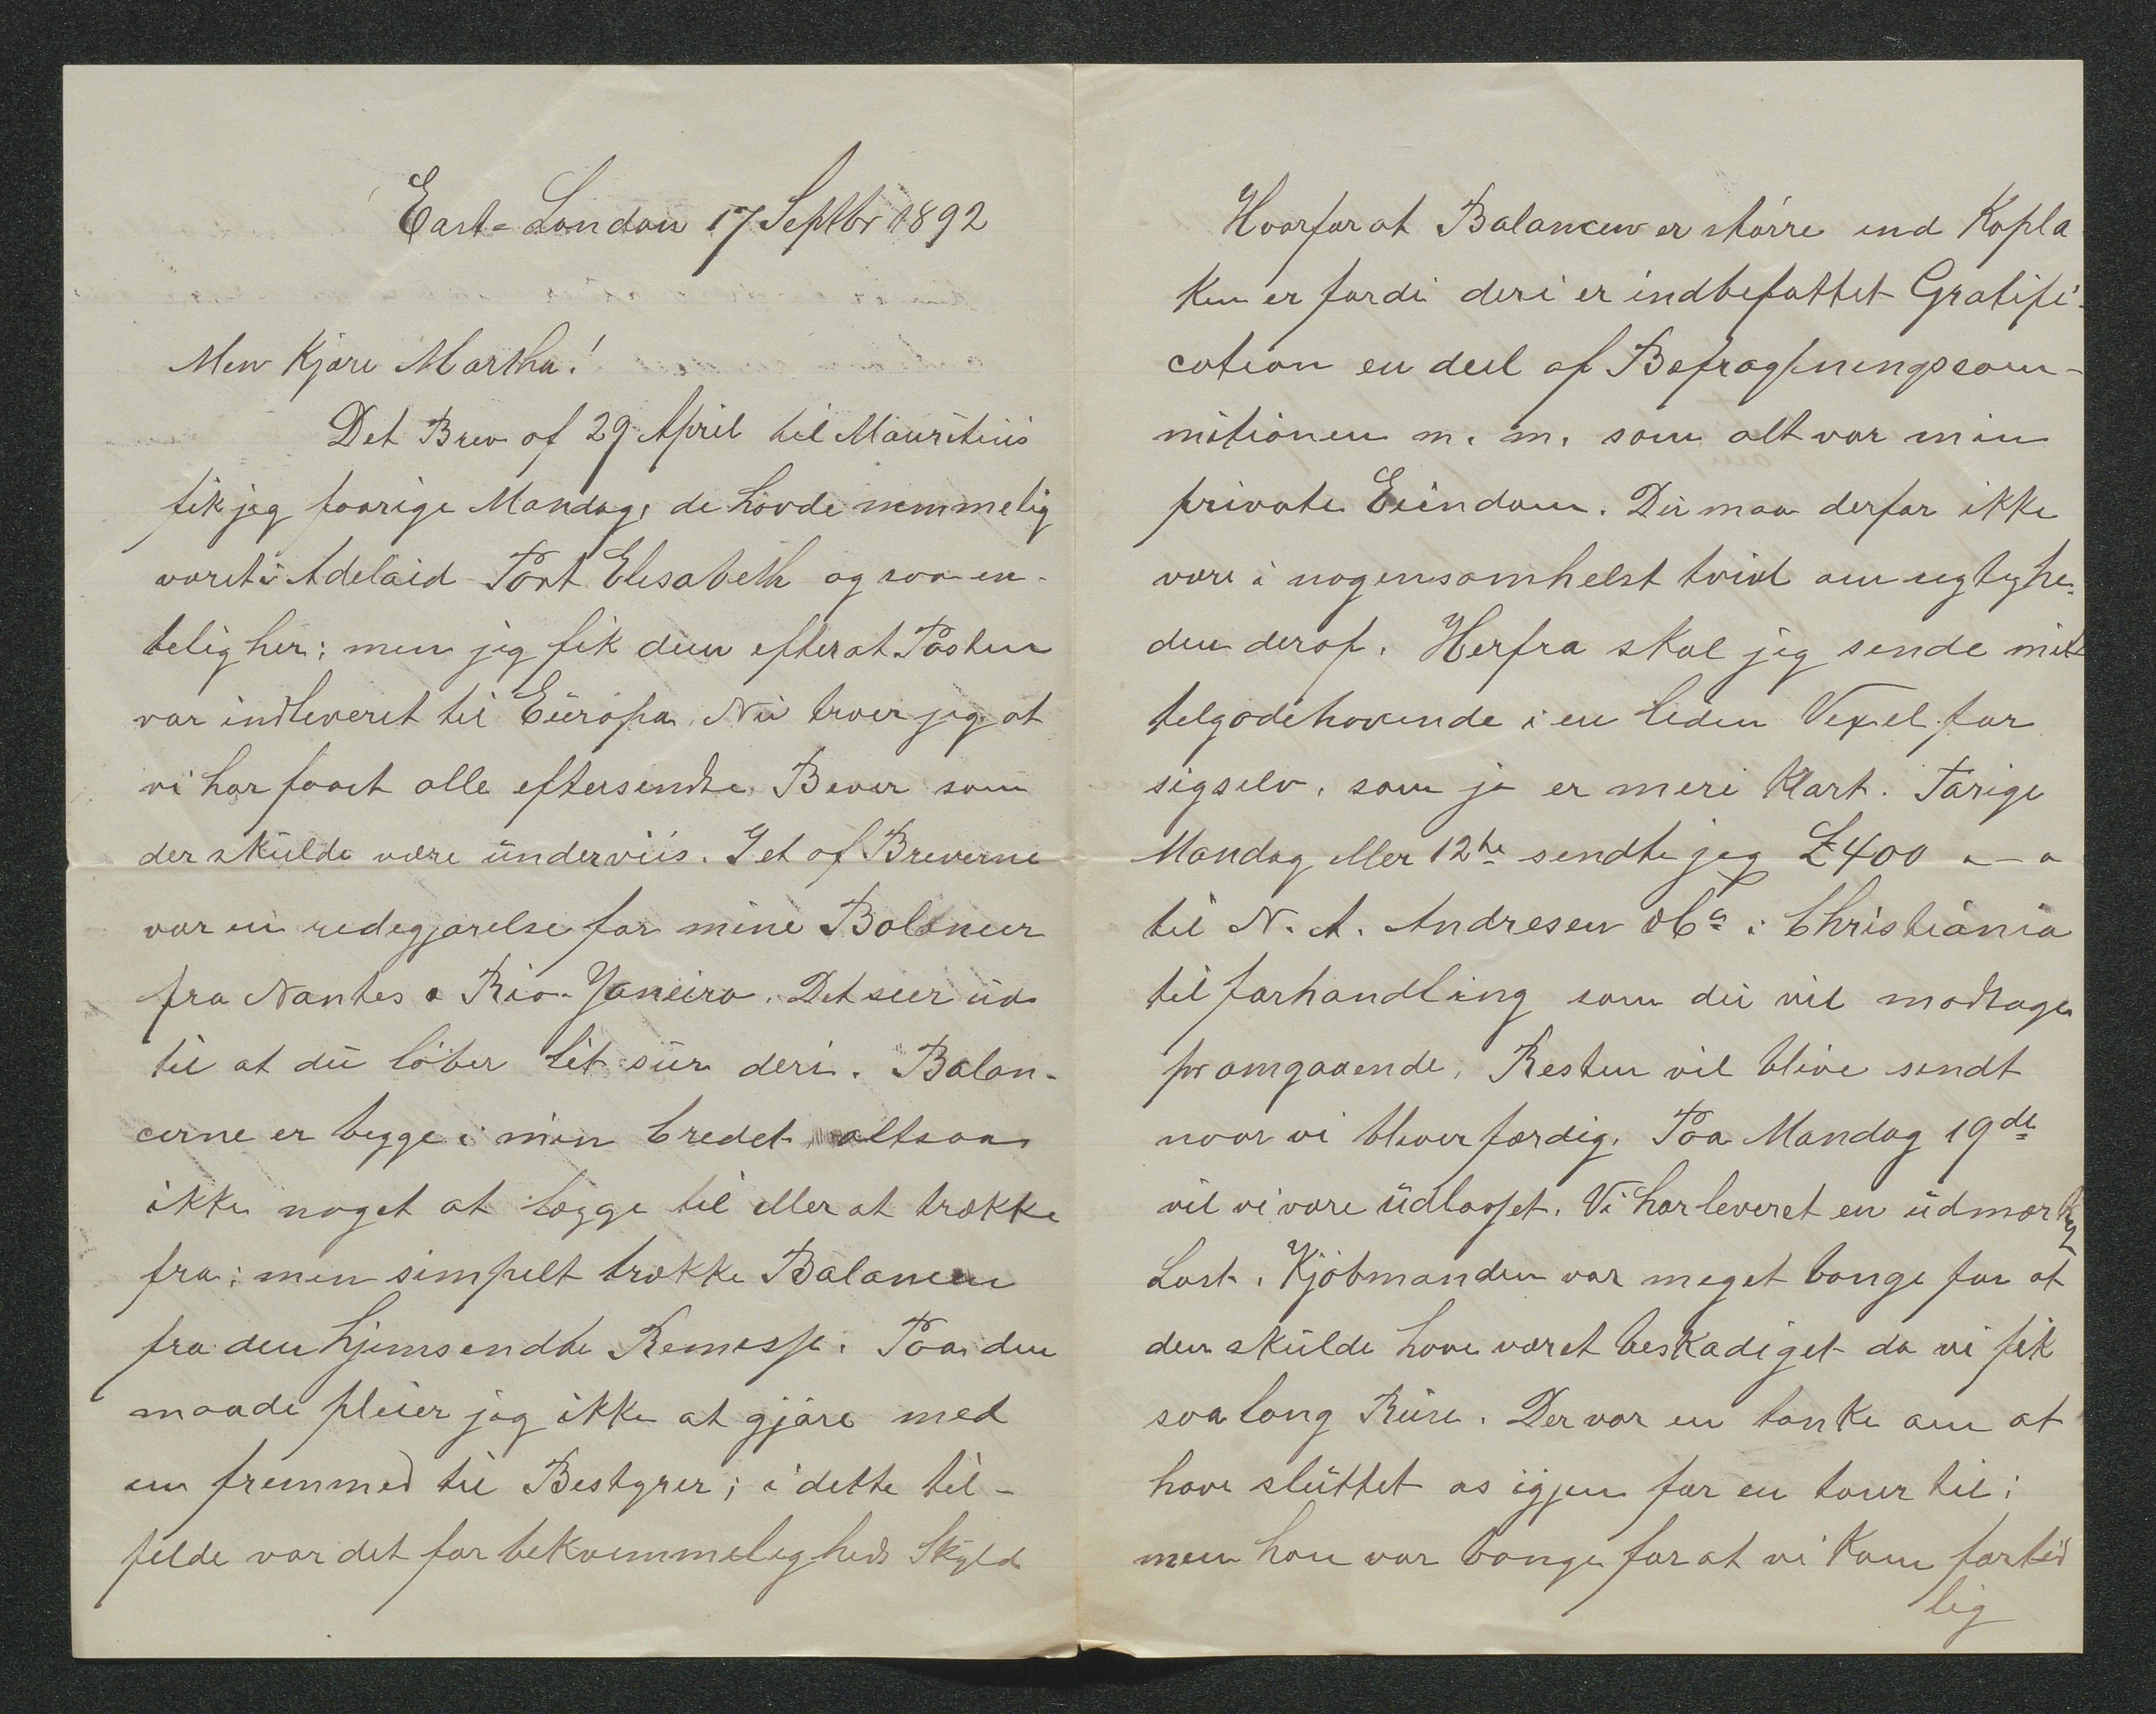 East-London 17 Septbr 1892
Min Kjære Martha!
Det Brev af 29 April til Mauritius
fik jeg forrige Mandag, de havde nemmelig
været i Adelaid Port Elisabeth og saa en-
telig her; men jeg fik dem efter at Posten
var indleveret til Európa. Nu troer jeg at
vi har faaet alle eftersendte Brever som
der skulde være underviis. I et af Breverne
var en redegjørelse for mine Balancer
fra Nantes o Rio-Janeiro. Det seer ud
til at du løber lit sur deri. Balan-
cerne er begge i min Credet altsaa
ikke noget at lægge til eller at trække
fra; men simpelt trække Balancen
fra den hjemsendte Remesse. Paa den
maade pleier jeg ikke at gjøre med
en fremmed til Bestyrer; i dette til-
felde var det for bekvemmeligheds Skyld
Hvorfor at Balancen er større end Kapla
ken er fordi deri er indbefattet Gratifi-
cation en deel af Befragtningscom-
mitionen m. m. som alt var min
private Eiendom. Du maa derfor ikke
være i nogensomhelst tvivl om ugtyhe-
den deraf. Herfra skal jeg sende mit
telgodehavende i en liden Vexel for
sigselv, som jo er meri Klart. Forige
Mandag eller 12te sendte jeg £400 "-"
til N. A. Andresen & Co i Christiania
til forhandling som du vil modtage
pr omgaaende. Resten vil blive sendt
naar vi bliver færdig. Paa Mandag 19de
vil vi være udlosset. Vi har leveret en udmærket
Last. Kjøbmanden var meget bange for at
den skulde have været beskadiget da vi fik
saa lang Reise. Der var en tanke om at
have sluttet os igjen for en tour til;
men han var bange for at vi kom fortid
lig